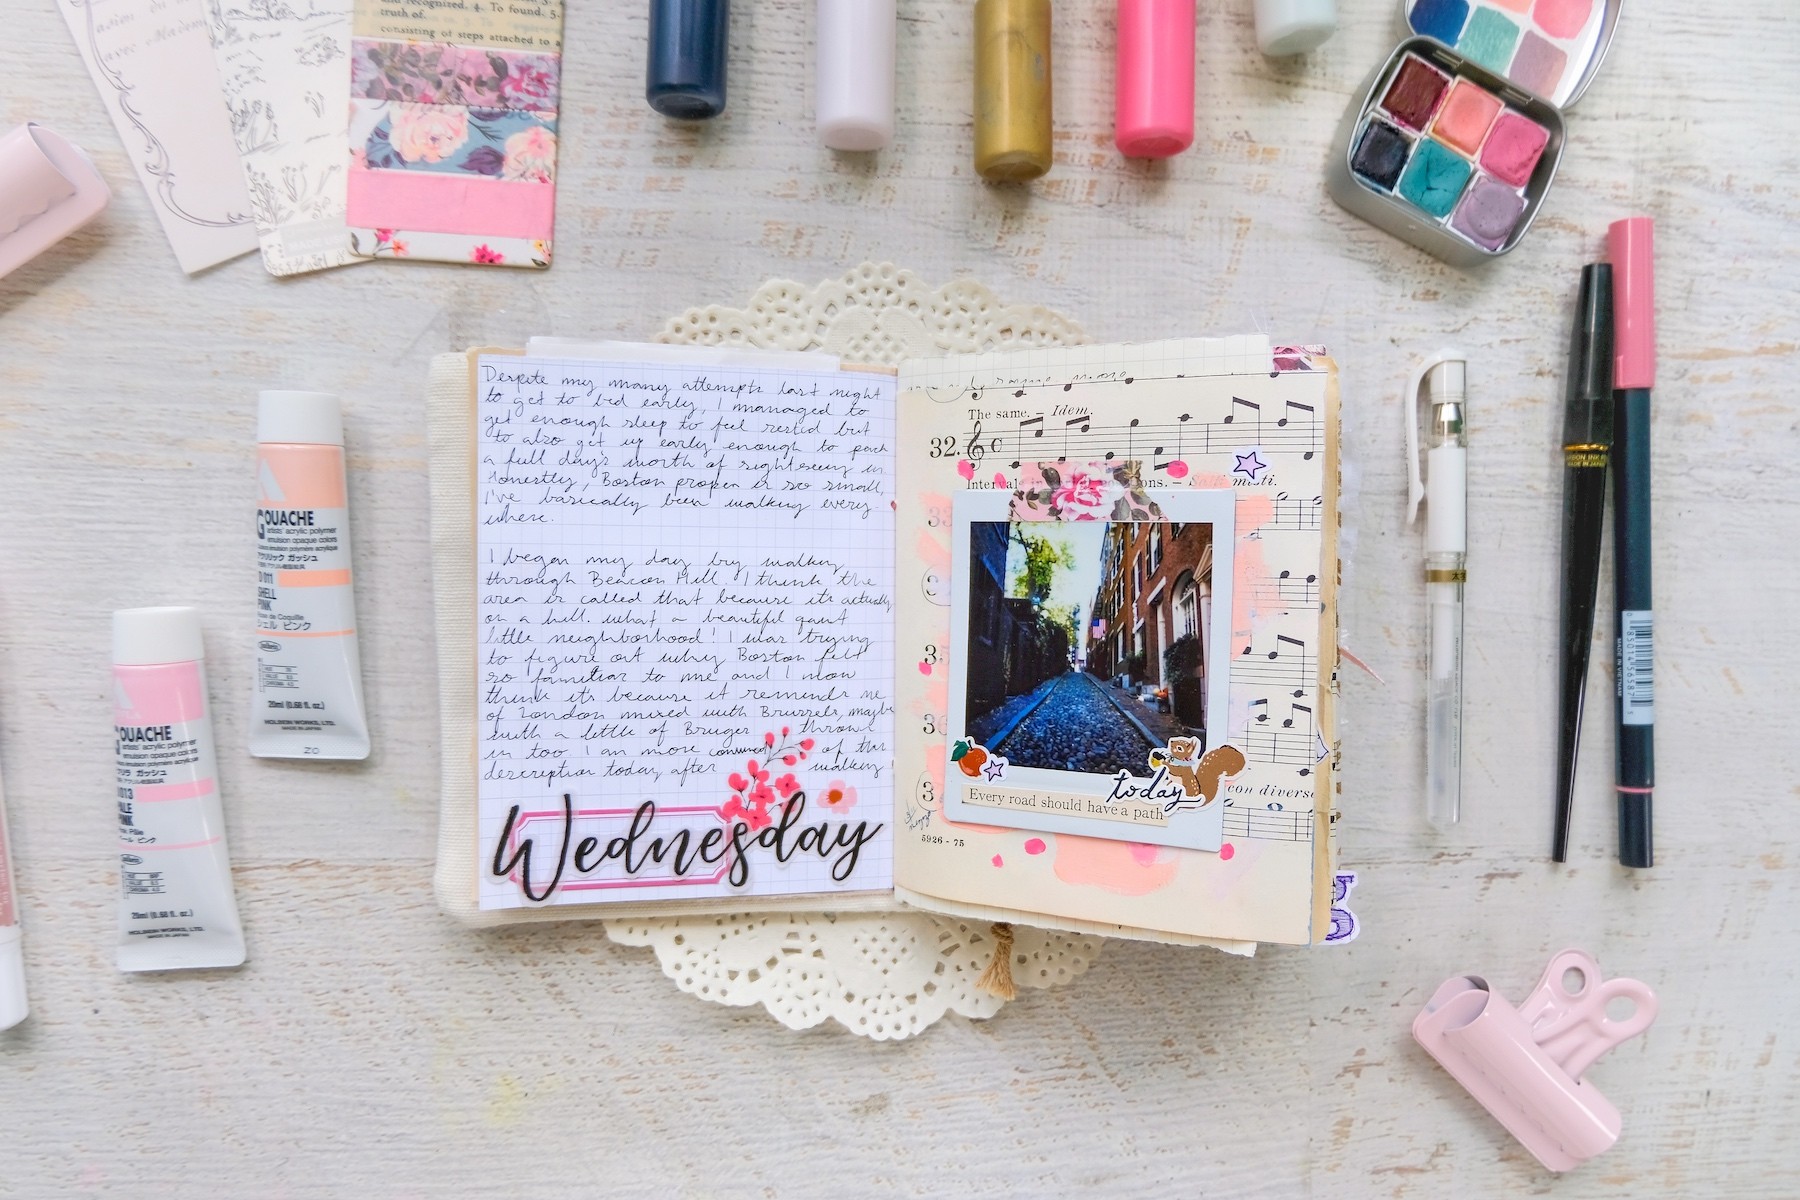 and recognized. 4. To found. 5.
truth of.
consisting of steps attached to a
avec Madem
Despite my many attempts last night
to get to bed early, I managed to
get enough sleep to feel rested but
to also get up early enough to pack
a full day's worth of sightseeing in
Honestly, Boston proper is so small,
I've basically been walking every
where.
I began my day by walking
through Beacon Hill. I think the
area is called that because its actually
on a hill. what a beautiful quant
little neighborhood! I was trying
to figure out why Boston felt
so familiar to me and I now
think its because it reminds me
of London mixed with Brussels, maybe
with a little of Bruges thrown
in too. I am more convinced of this
description today after walking
Wednesday
The same. – Idem.
32.
C
Intervals
ons. –
33
3
36
3
con diverse
today
Every road should have a path
5926 - 75
GOUACHE
artists' acrylic polymer
emulsion opaque colors
emulsion polymère acrylique
アクリリック ガッシュ
D 011
SHELL
PINK
シェル ピンク
20ml (0.68 fl. oz.)
HOLBEIN WORKS, LTD.
MADE IN JAPAN
ZO
GOUACHE
artists' acrylic polymer
emulsion opaque colors
emulsion polymère acrylique
アクリリック ガッシュ
013
PALE
PINK
ペール ピンク
20ml (0.68 fl. oz.)
HOLBEIN WORKS, LTD.
MADE IN JAPAN
MADE IN JAPAN
MADE IN VIETNAM